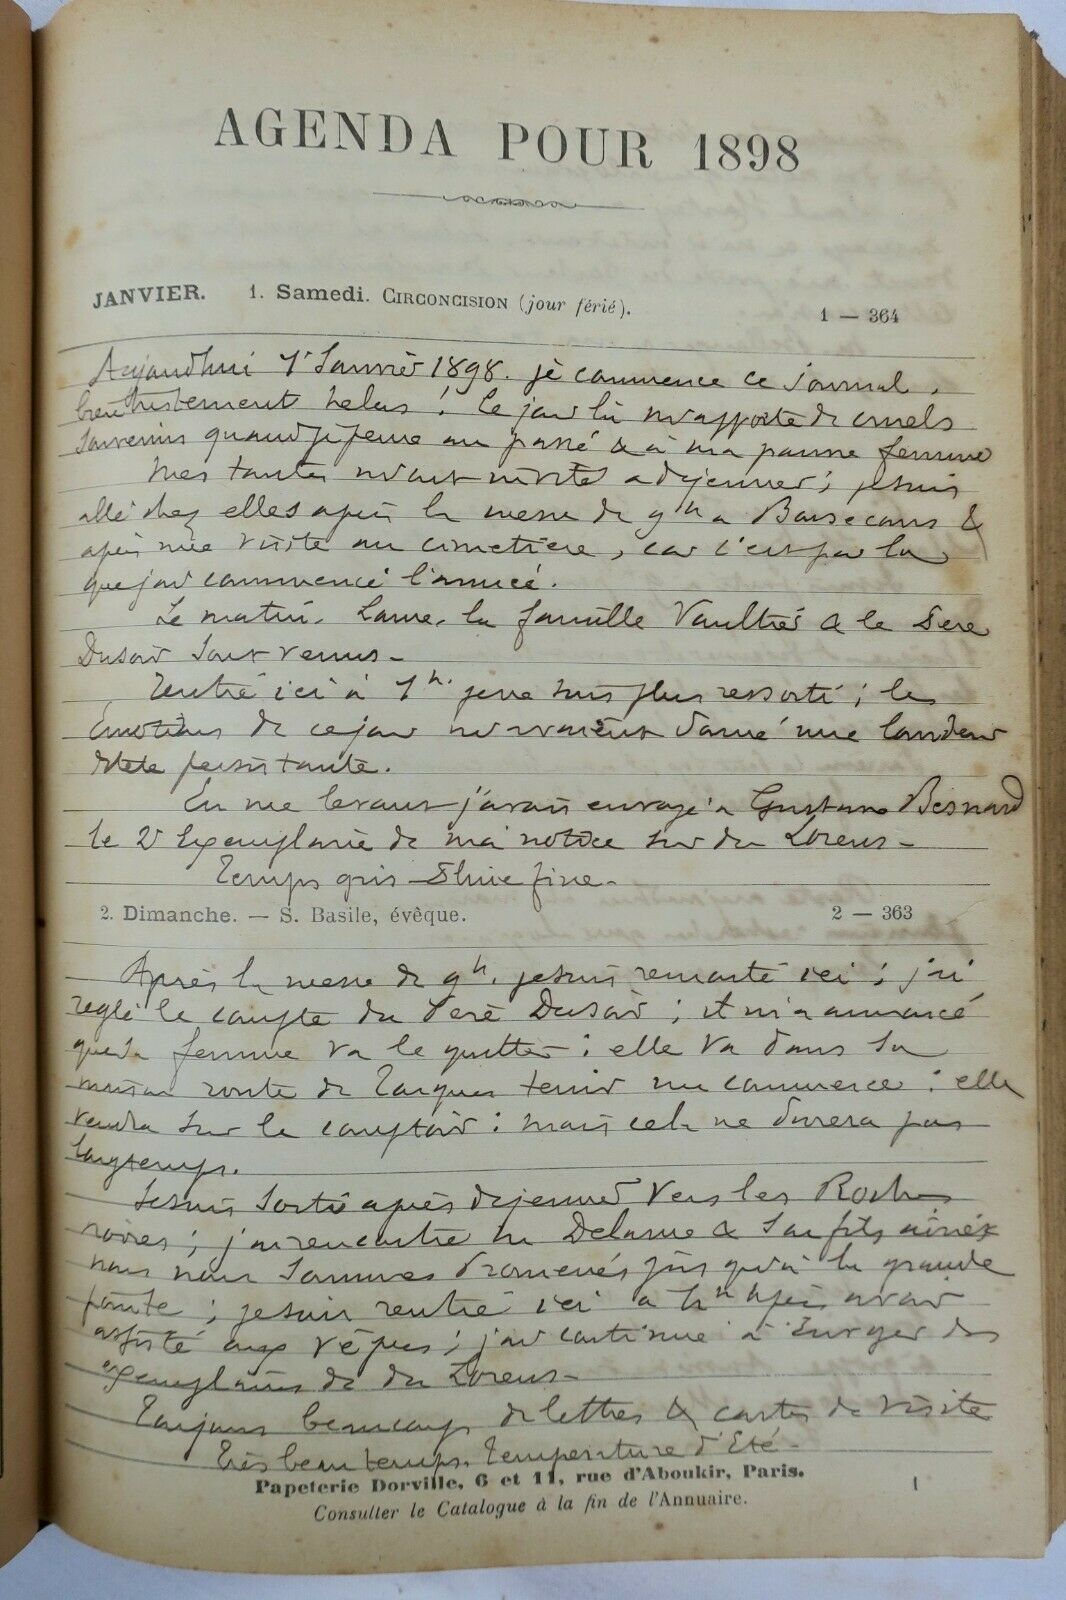 AGENDA POUR 1898
JANVIER. 1. Samedi. CIRCONCISION (jour férié). 1 — 364
Aujourdhui 1r Janvier 1898. je commence ce journal,
bien tristement helas ! Ce jour là m'apporte de cruels
souvenirs quand je pense au passé & à ma pauvre femme
Mes tantes m'ont invité a dejeuner ; je suis
allé chez elles après la messe de 9h a &
après une visite au cimetière, car c'est par la
que j'ai commencé l'année.
Le matin. la famille Vaultier & le Pere
Dusoir sont venus –
Rentré ici à 1h. je ne suis plus ressorti ; les
émotions de ce jour m'avaient donné une lourdeur
de tete persistante.
En me levant j'avais envoyé à Gustave Besnard
le 2e Exemplaire de ma notice sur du Lorens –
Temps gris – Pluie fine –
2. Dimanche. — S. Basile, évêque. 2 — 363
Après la messe de 9h. je suis remonté ici ; j'ai
reglé le compte du Père Dusoir ; il m'a annoncé
que sa femme va le quitter : elle va dans sa
maison route de tenir un commerce : elle
vendra sur le comptoir : mais cela ne durera pas
longtemps.
Je suis sorti après dejeuner vers les Roches
noires ; j'ai rencontré & son fils ainé &
nous nous sommes promenés jusqu'à la grande
pointe ; je suis rentré ici a après avoir
assisté aux vêpres ; j'ai continué à envoyer des
exemplaires de du Lorens –
Toujours beaucoup de lettres & cartes de visite
Très beau temps. Température d'Eté –
Papeterie Dorville, 6 et 11, rue d'Aboukir, Paris. 1
Consulter le Catalogue à la fin de l'Annuaire.